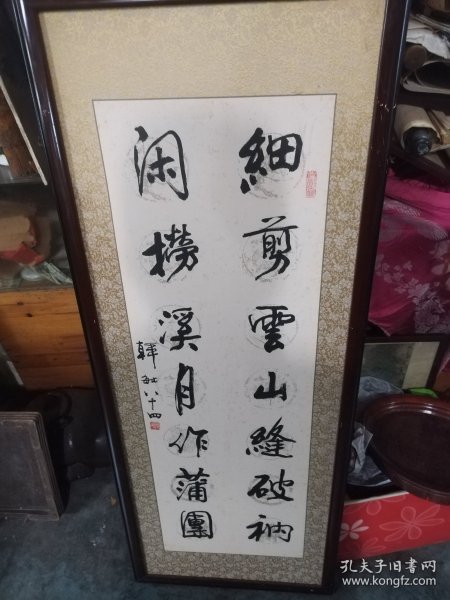 細剪雲山縫破衲
闲撈溪月作蒲團
韩敏八十四
孔夫子旧书网
www.kongfz.com